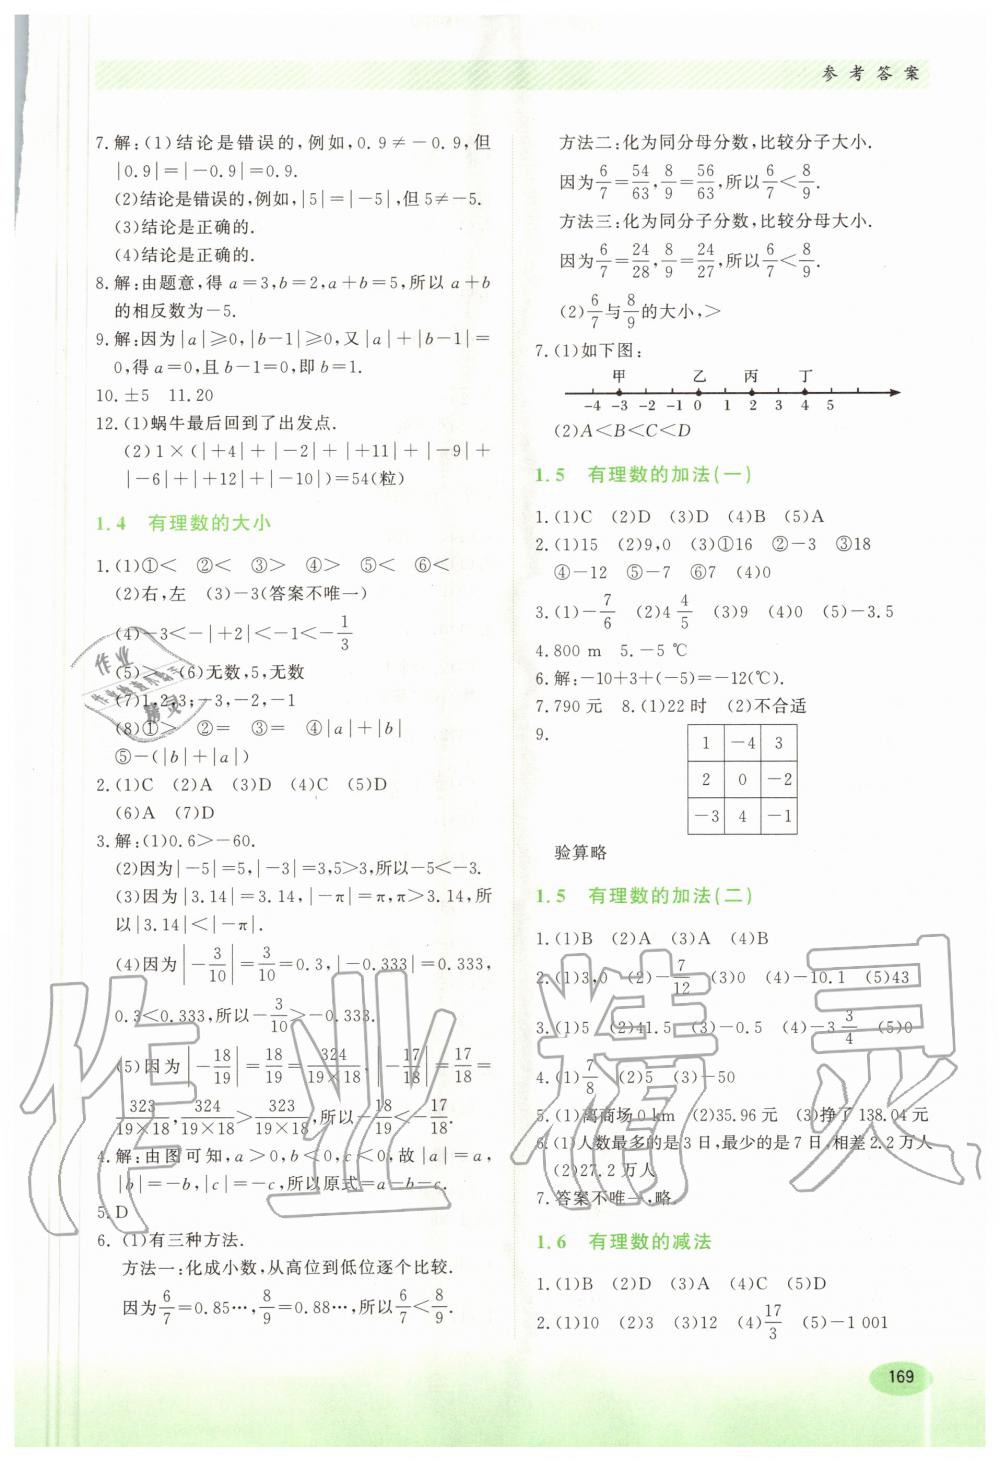 参考答案
7.解:(1)结论是错误的,例如,0.9≠-0.9,但
|0.9|=|-0.9|=0.9.
(2)结论是错误的,例如,|5|=|-5|,但5≠-5.
(3)结论是正确的.
(4)结论是正确的.
8.解:由题意,得a=3,b=2,a+b=5,所以a+b
的相反数为-5.
9.解:因为|a|≥0,|b-1|≥0,又|a|+|b-1|=
0,得a=0,且b-1=0,即b=1.
10.±5 11.20
12.(1)蜗牛最后回到了出发点.
(2)1×(|+4|+|-2|+|+11|+|-9|+
|-6|+|+12|+|-10|)=54(粒)
1.4 有理数的大小
1.(1)①< ②< ③> ④> ⑤< ⑥<
(2)右,左 (3)-3(答案不唯一)
(4)-3<-|+2|<-1<-1/3
(5)> (6)无数,5,无数
(7)1,2,3;-3,-2,-1
(8)①> ②= ③= ④|a|+|b|
⑤-(|b|+|a|)
2.(1)C (2)A (3)D (4)C (5)D
(6)A (7)D
3.解:(1)0.6>-60.
(2)因为|-5|=5,|-3|=3,5>3,所以-5<-3.
(3)因为|3.14|=3.14,|-π|=π,π>3.14,所
以|3.14|<|-π|.
(4)因为|-3/10|=3/10=0.3,|-0.333|=0.333,
0.3<0.333,所以-3/10>-0.333.
(5)因为|-18/19|=18/19=324/19×18,|-17/18|=17/18=
323/19×18,324/19×18>323/19×18,所以-18/19<-17/18.
4.解:由图可知,a>0,b<0,c<0,故|a|=a,
|b|=-b,|c|=-c,所以原式=a-b-c.
5.D
6.(1)有三种方法.
方法一:化成小数,从高位到低位逐个比较.
因为6/7=0.85…,8/9=0.88…,所以6/7<8/9.
方法二:化为同分母分数,比较分子大小.
因为6/7=54/63,8/9=56/63,所以6/7<8/9.
方法三:化为同分子分数,比较分母大小.
因为6/7=24/28,8/9=24/27,所以6/7<8/9.
(2)6/7与8/9的大小,>
7.(1)如下图:
甲 乙 丙 丁
-4 -3 -2 -1 0 1 2 3 4 5
(2)A<B<C<D
1.5 有理数的加法(一)
1.(1)C (2)D (3)D (4)B (5)A
2.(1)15 (2)9,0 (3)①16 ②-3 ③18
④-12 ⑤-7 ⑥7 (4)0
3.(1)-7/6 (2)4 4/5 (3)9 (4)0 (5)-3.5
4.800 m 5.-5 ℃
6.解:-10+3+(-5)=-12(℃).
7.790元 8.(1)22时 (2)不合适
9.
1 -4 3
2 0 -2
-3 4 -1
验算略
1.5 有理数的加法(二)
1.(1)B (2)A (3)A (4)B
2.(1)3,0 (2)-7/12 (3)0 (4)-10.1 (5)43
3.(1)5 (2)41.5 (3)-0.5 (4)-3 3/4 (5)0
4.(1)7/8 (2)5 (3)-50
5.(1)离商场0 km (2)35.96元 (3)挣了138.04元
6.(1)人数最多的是3日,最少的是7日,相差2.2万人
(2)27.2万人
7.答案不唯一,略.
1.6 有理数的减法
1.(1)B (2)D (3)A (4)C (5)D
2.(1)10 (2)3 (3)12 (4)17/3 (5)-1 001
169
作业精灵